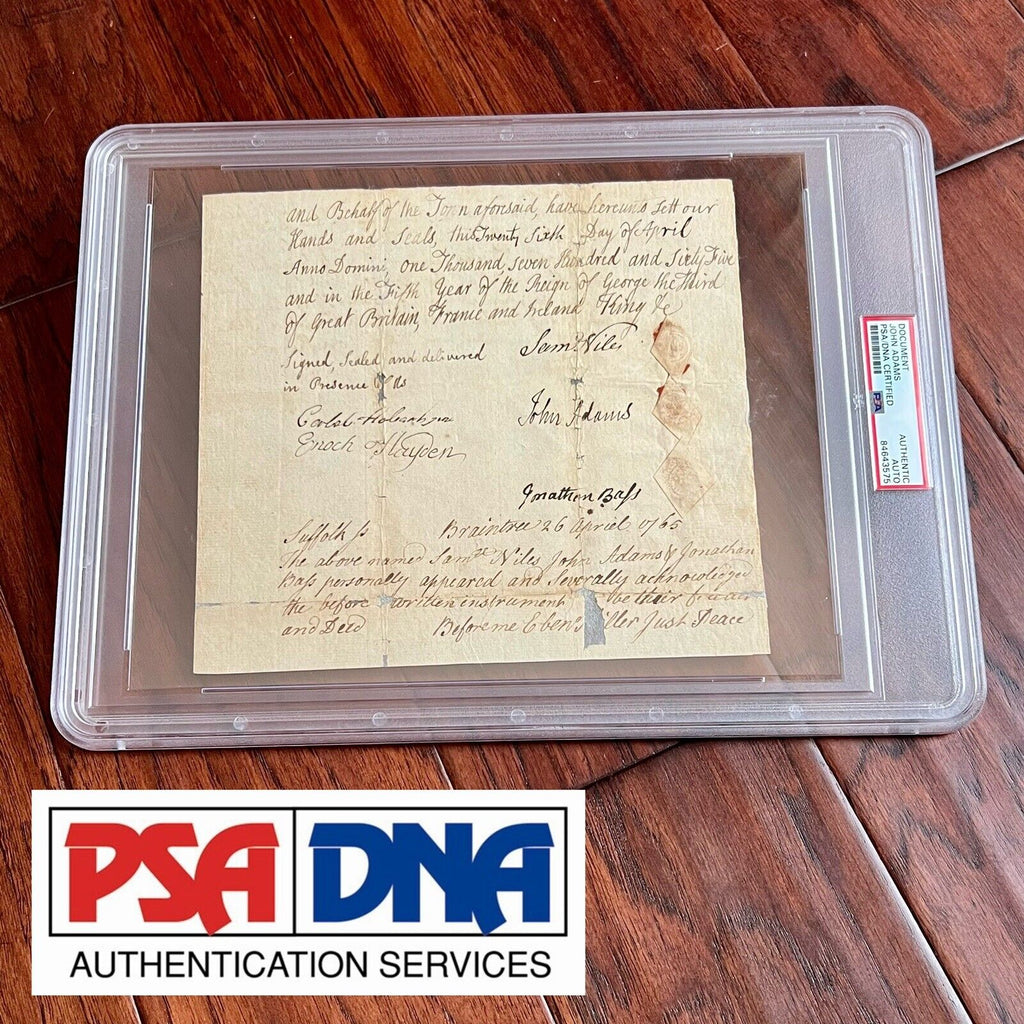 and Behalf of the Town aforesaid, have hereunto sett our
Hands and Seals, this Twenty Sixth Day of April
Anno Domini, one Thousand seven Hundred and Sixty Five
and in the Fifth Year of the Reign of George the Third
of Great Britain, France and Ireland King &c
Signed, Sealed and delivered
in Presence of us
Enoch Hayden
Samll. Niles
John Adams
Jonathan Bass
Suffolk ss Braintree 26 Apriel 1765
The above named Samll Niles John Adams & Jonathan
Bass personally appeared and Severally acknowledged
the before written instrument be their free
and Deed Before me Eben Miller Just Peace
DOCUMENT
JOHN ADAMS
PSA/DNA CERTIFIED
PSA
AUTHENTIC
AUTO
84643575
PSA DNA
AUTHENTICATION SERVICES